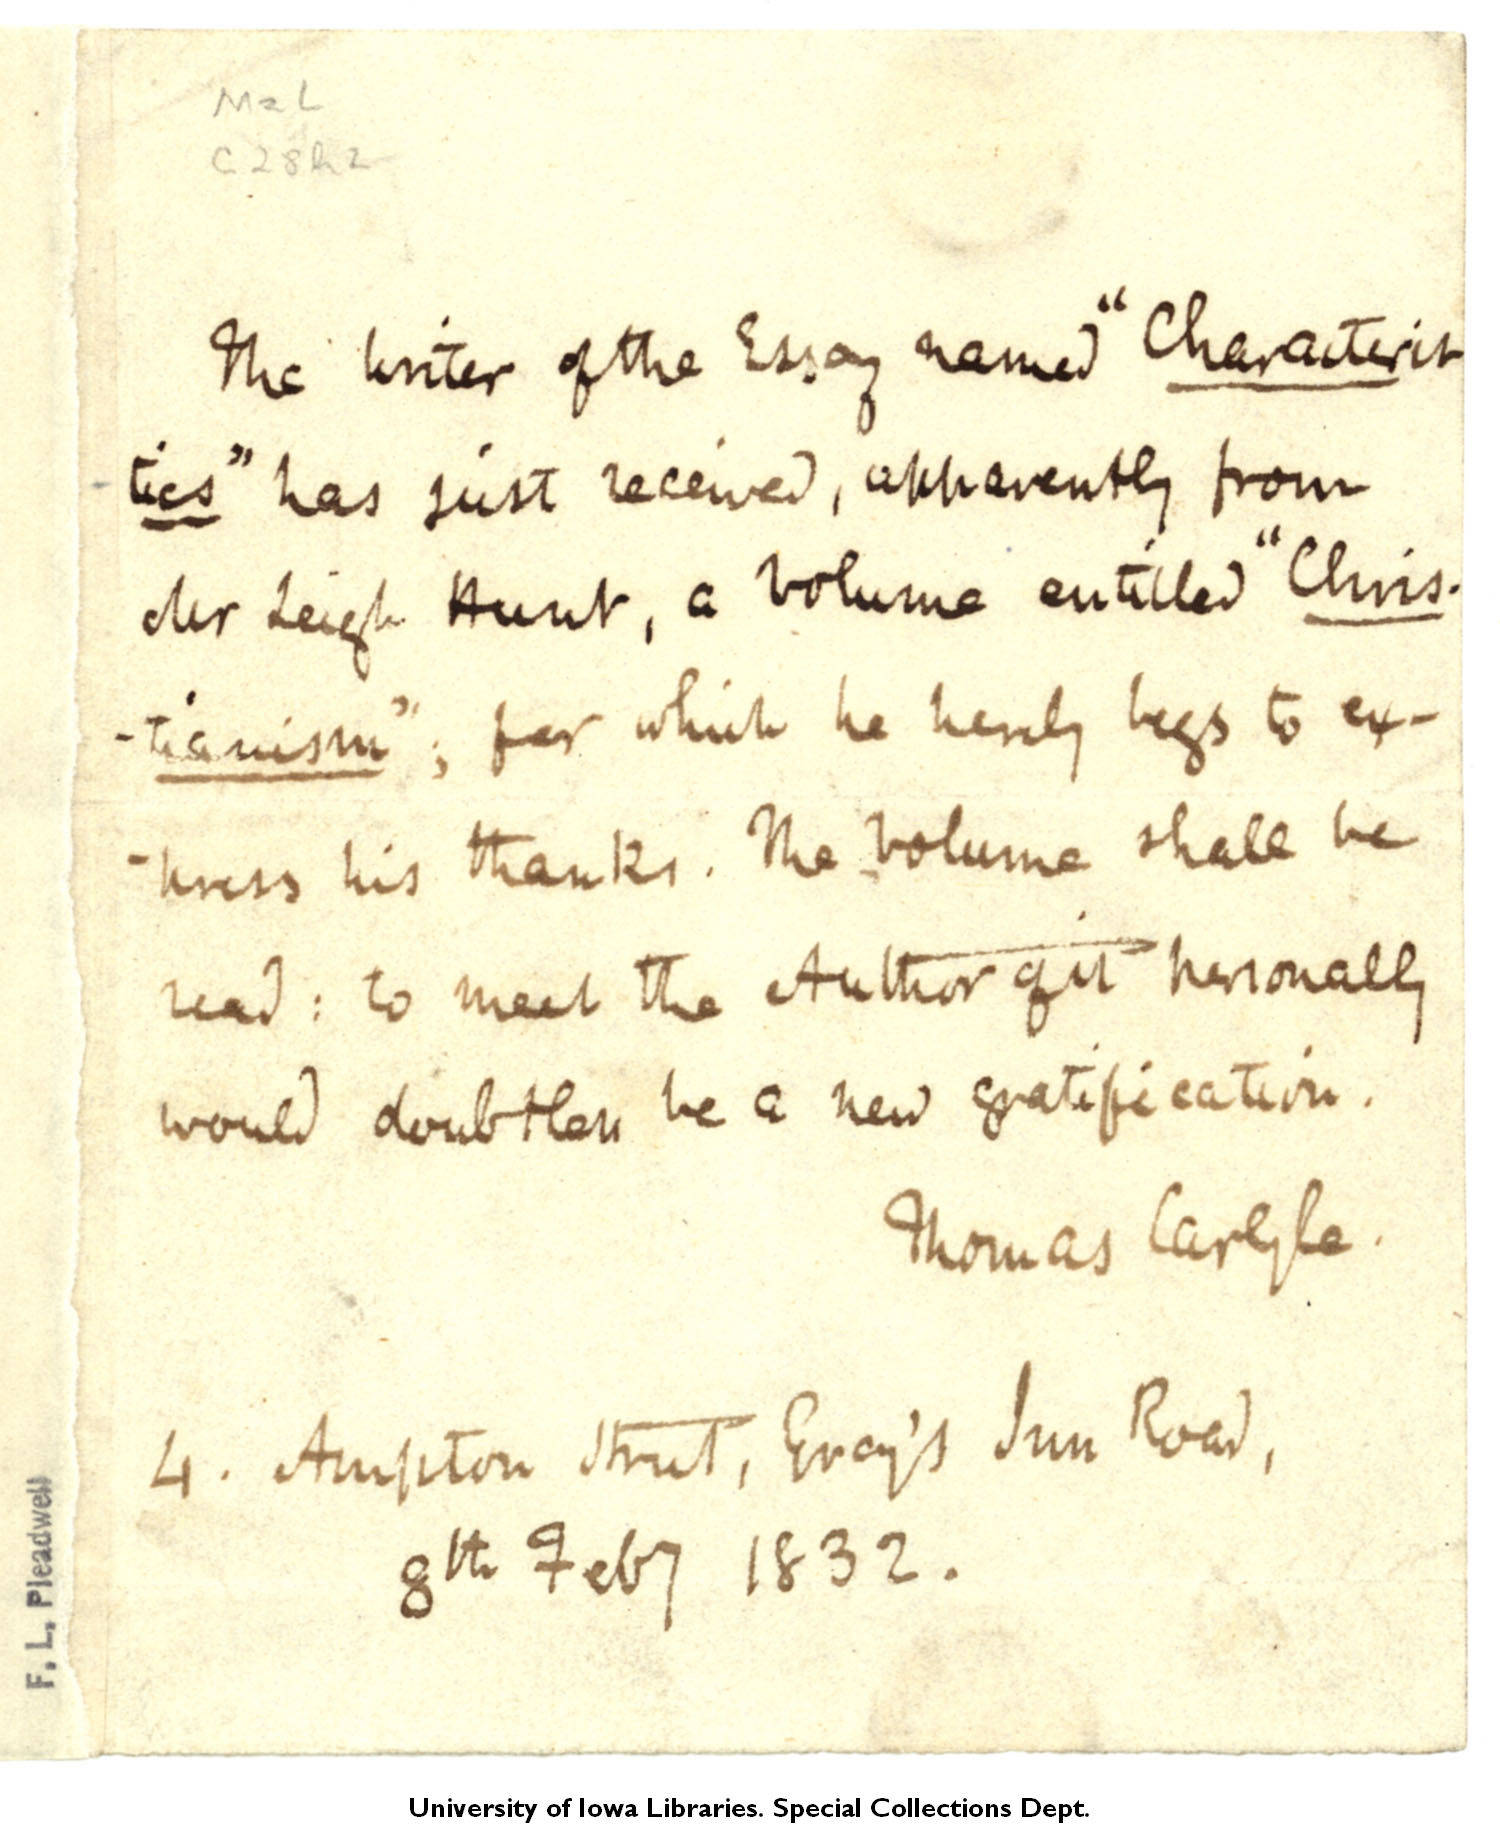 MsL
C28h2
The writer of the Essay named "Characteris
tics" has just received, apparently from
Mr Leigh Hunt, a volume entitled "Chris-
-tianism"; for which he hereby begs to ex-
-press his thanks. The volume shall be
read: to meet the Author of it personally
would doubtless be a new gratification.
Thomas Carlyle.
4. Ampton Street, Gray's Inn Road,
8th Feby 1832.
F. L. Pleadwell
University of Iowa Libraries. Special Collections Dept.